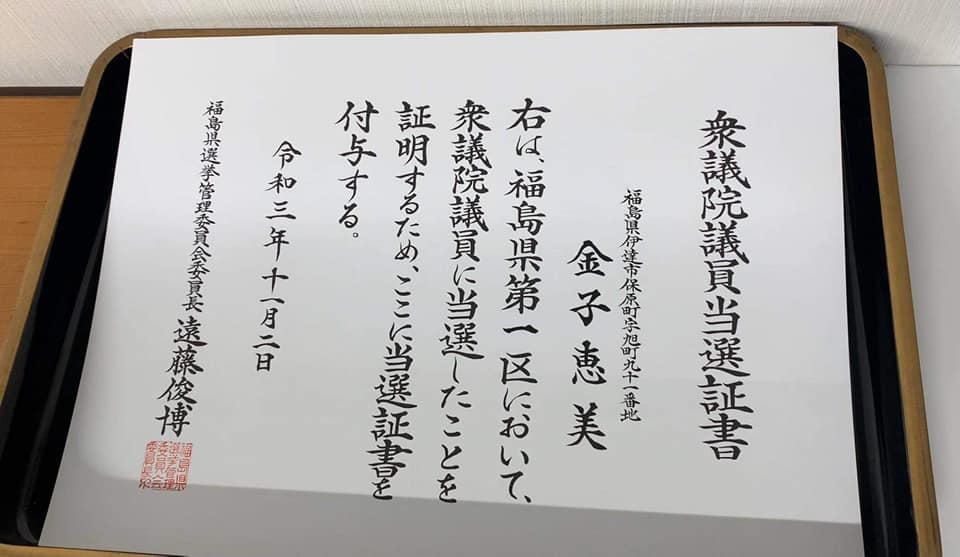 衆議院議員当選証書
福島県伊達市保原町字旭町九十一番地
金子恵美
右は、福島県第一区において、
衆議院議員に当選したことを
証明するため、ここに当選証書を
付与する。
令和三年十一月二日
福島県選挙管理委員会委員長 遠藤俊博
福島県
選挙管理
委員会
委員長印